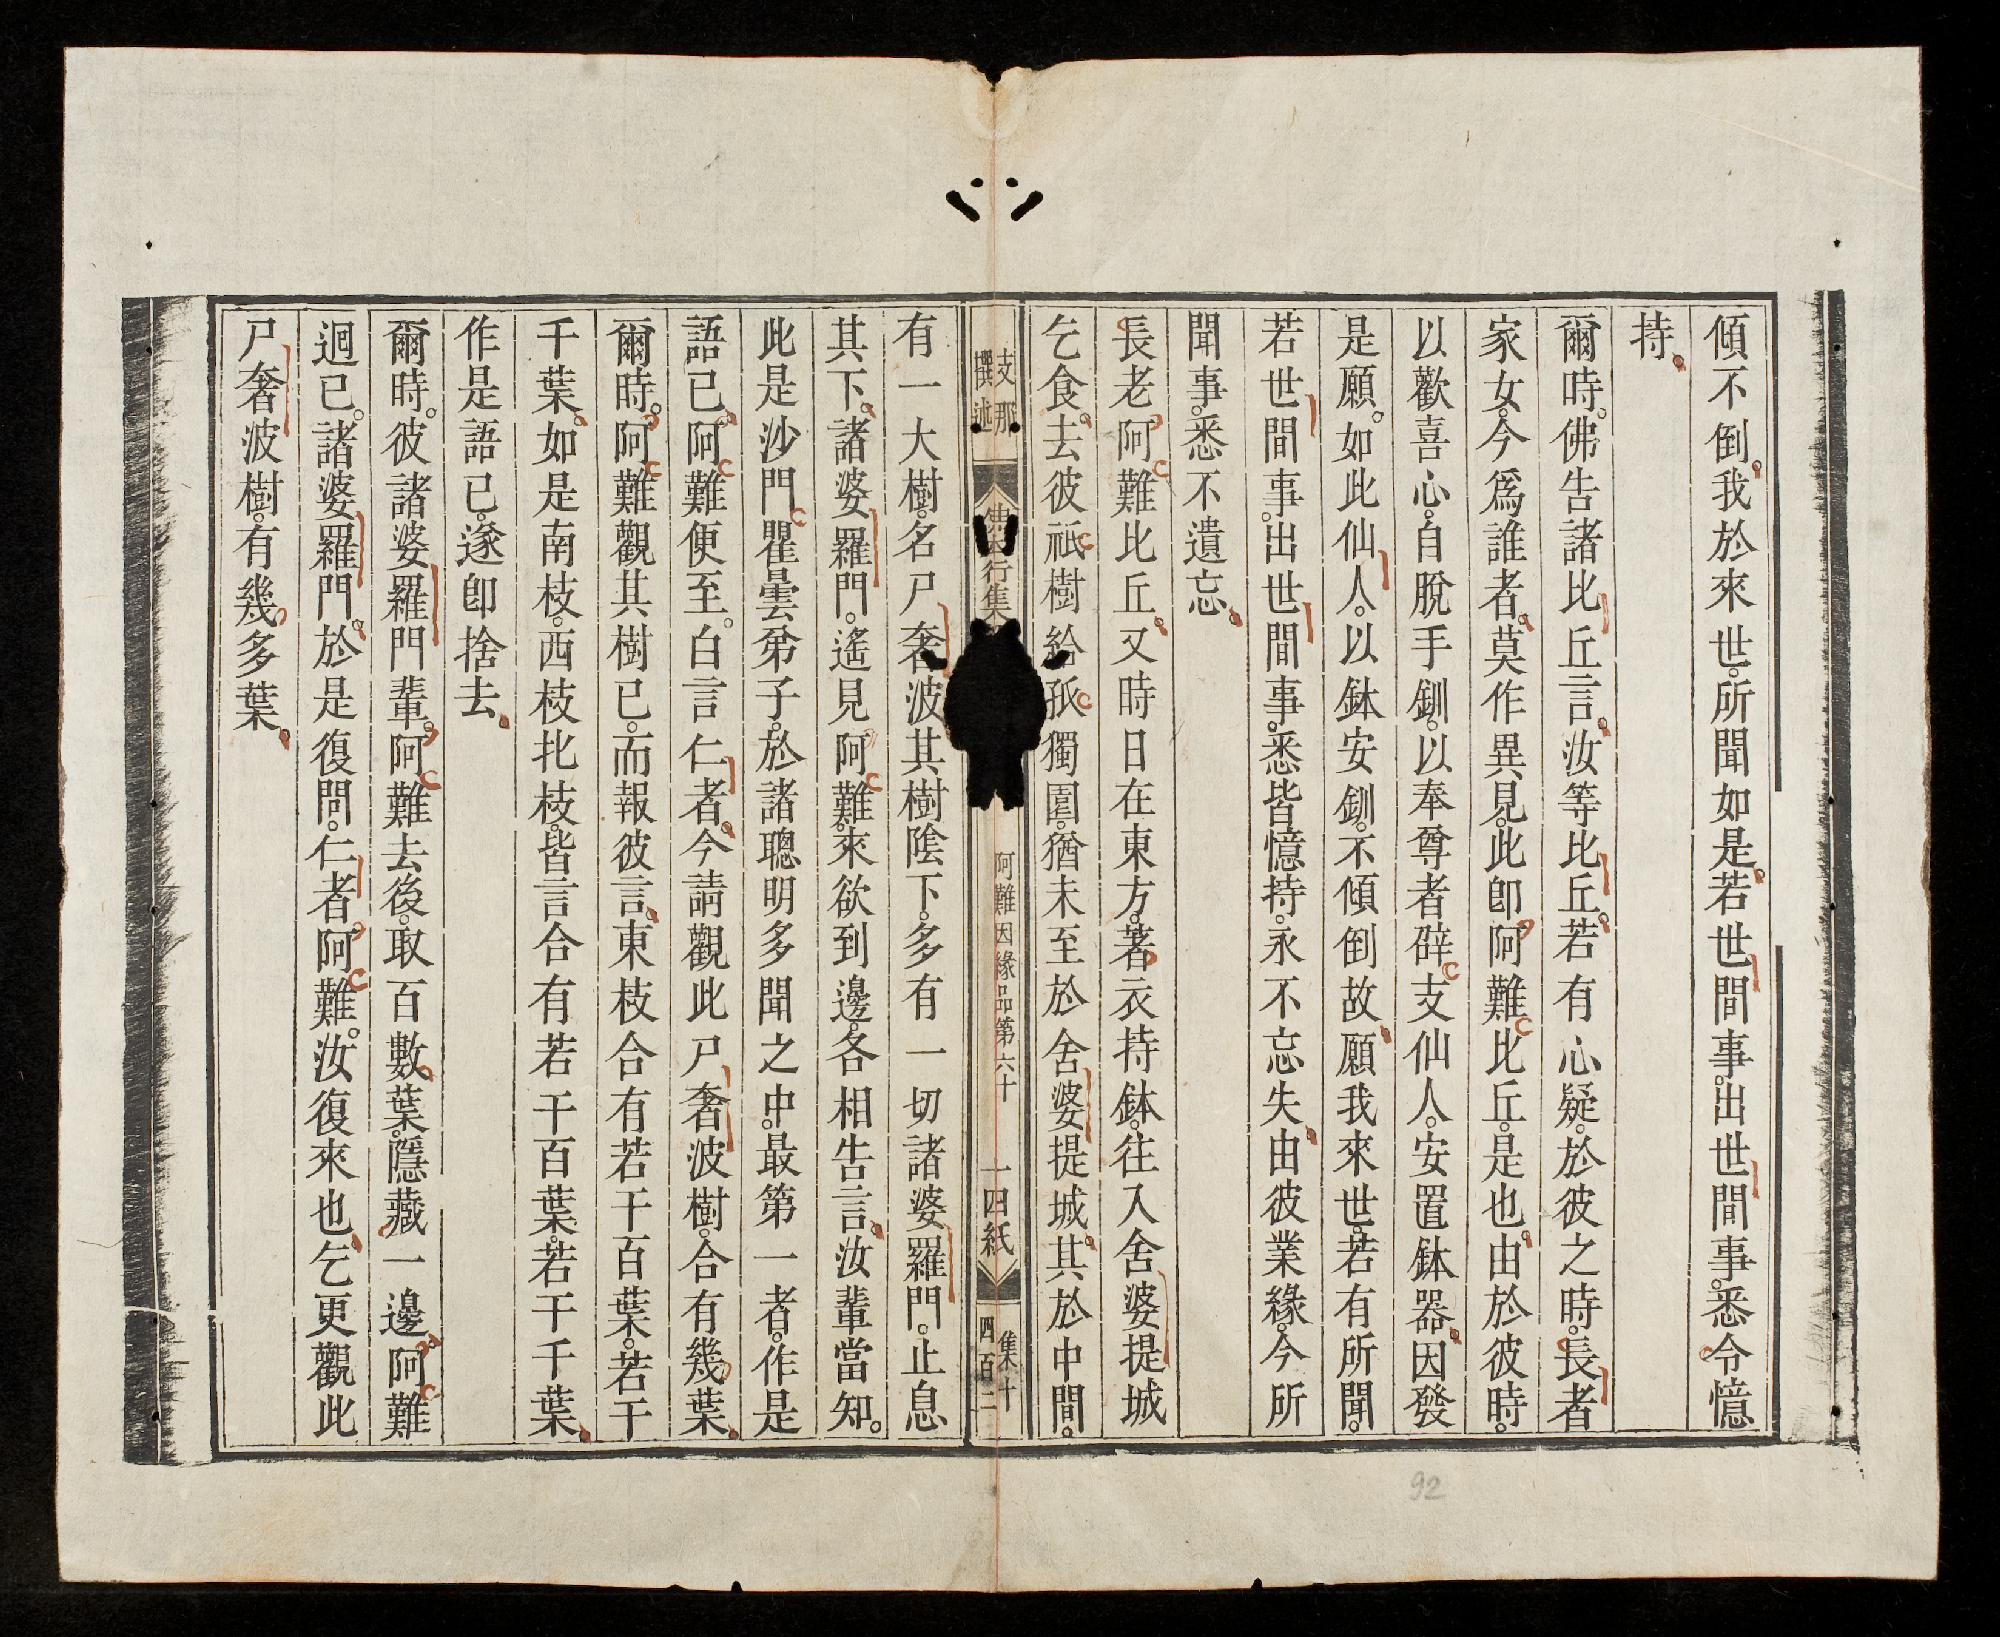 傾不倒。我於來世。所聞如是。若世間事。出世間事。悉令憶
持。
爾時。佛告諸比丘言。汝等比丘。若有心疑。於彼之時。長者
家女。今爲誰者。莫作異見。此卽阿難比丘。是也。由於彼時。
以歡喜心。自脫手釧。以奉尊者辟支仙人。安置鉢器。因發
是願。如此仙人。以鉢安釧。不傾倒故。願我來世。若有所聞。
若世間事。出世間事。悉皆憶持。永不忘失。由彼業緣。今所
聞事。悉不遺忘。
長老阿難比丘。又時日在東方。著衣持鉢。往入舍婆提城
乞食。去彼祇樹給孤獨園。猶未至於舍婆提城。其於中間。
支那
撰述
佛本行集
阿難因緣品第六十
一四紙
集十
四百二
有一大樹。名尸奢波。其樹陰下。多有一切諸婆羅門。止息
其下。諸婆羅門。遙見阿難。來欲到邊。各相告言。汝輩當知。
此是沙門瞿曇弟子。於諸聰明多聞之中。最第一者。作是
語已。阿難便至。白言仁者。今請觀此尸奢波樹。合有幾葉。
爾時。阿難觀其樹已。而報彼言。東枝合有若干百葉。若干
千葉。如是南枝。西枝北枝。皆言合有若干百葉。若干千葉。
作是語已。遂卽捨去。
爾時。彼諸婆羅門輩。阿難去後。取百數葉。隱藏一邊。阿難
迴已。諸婆羅門。於是復問。仁者。阿難。汝復來也。乞更觀此
尸奢波樹。有幾多葉。
92